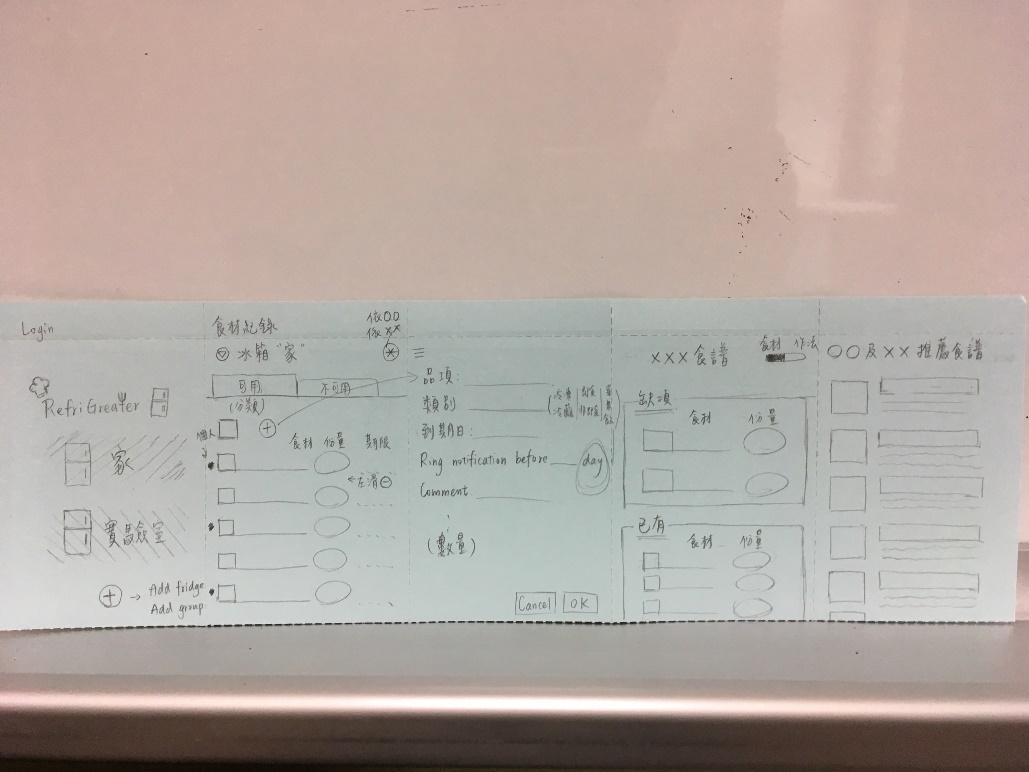 Login
RefriGreater
家
實驗室
Add fridge
Add group
食材紀錄
依OO
依××
冰箱"家"
可用
不可用
(分類)
個人
食材 份量 期限
←左滑⊖
品項:
類別
到期日:
Ring notification before day
Comment
(數量)
Cancel OK
×××食譜
食材 作法
缺項
食材 份量
已有
食材 份量
○○及×× 推薦食譜